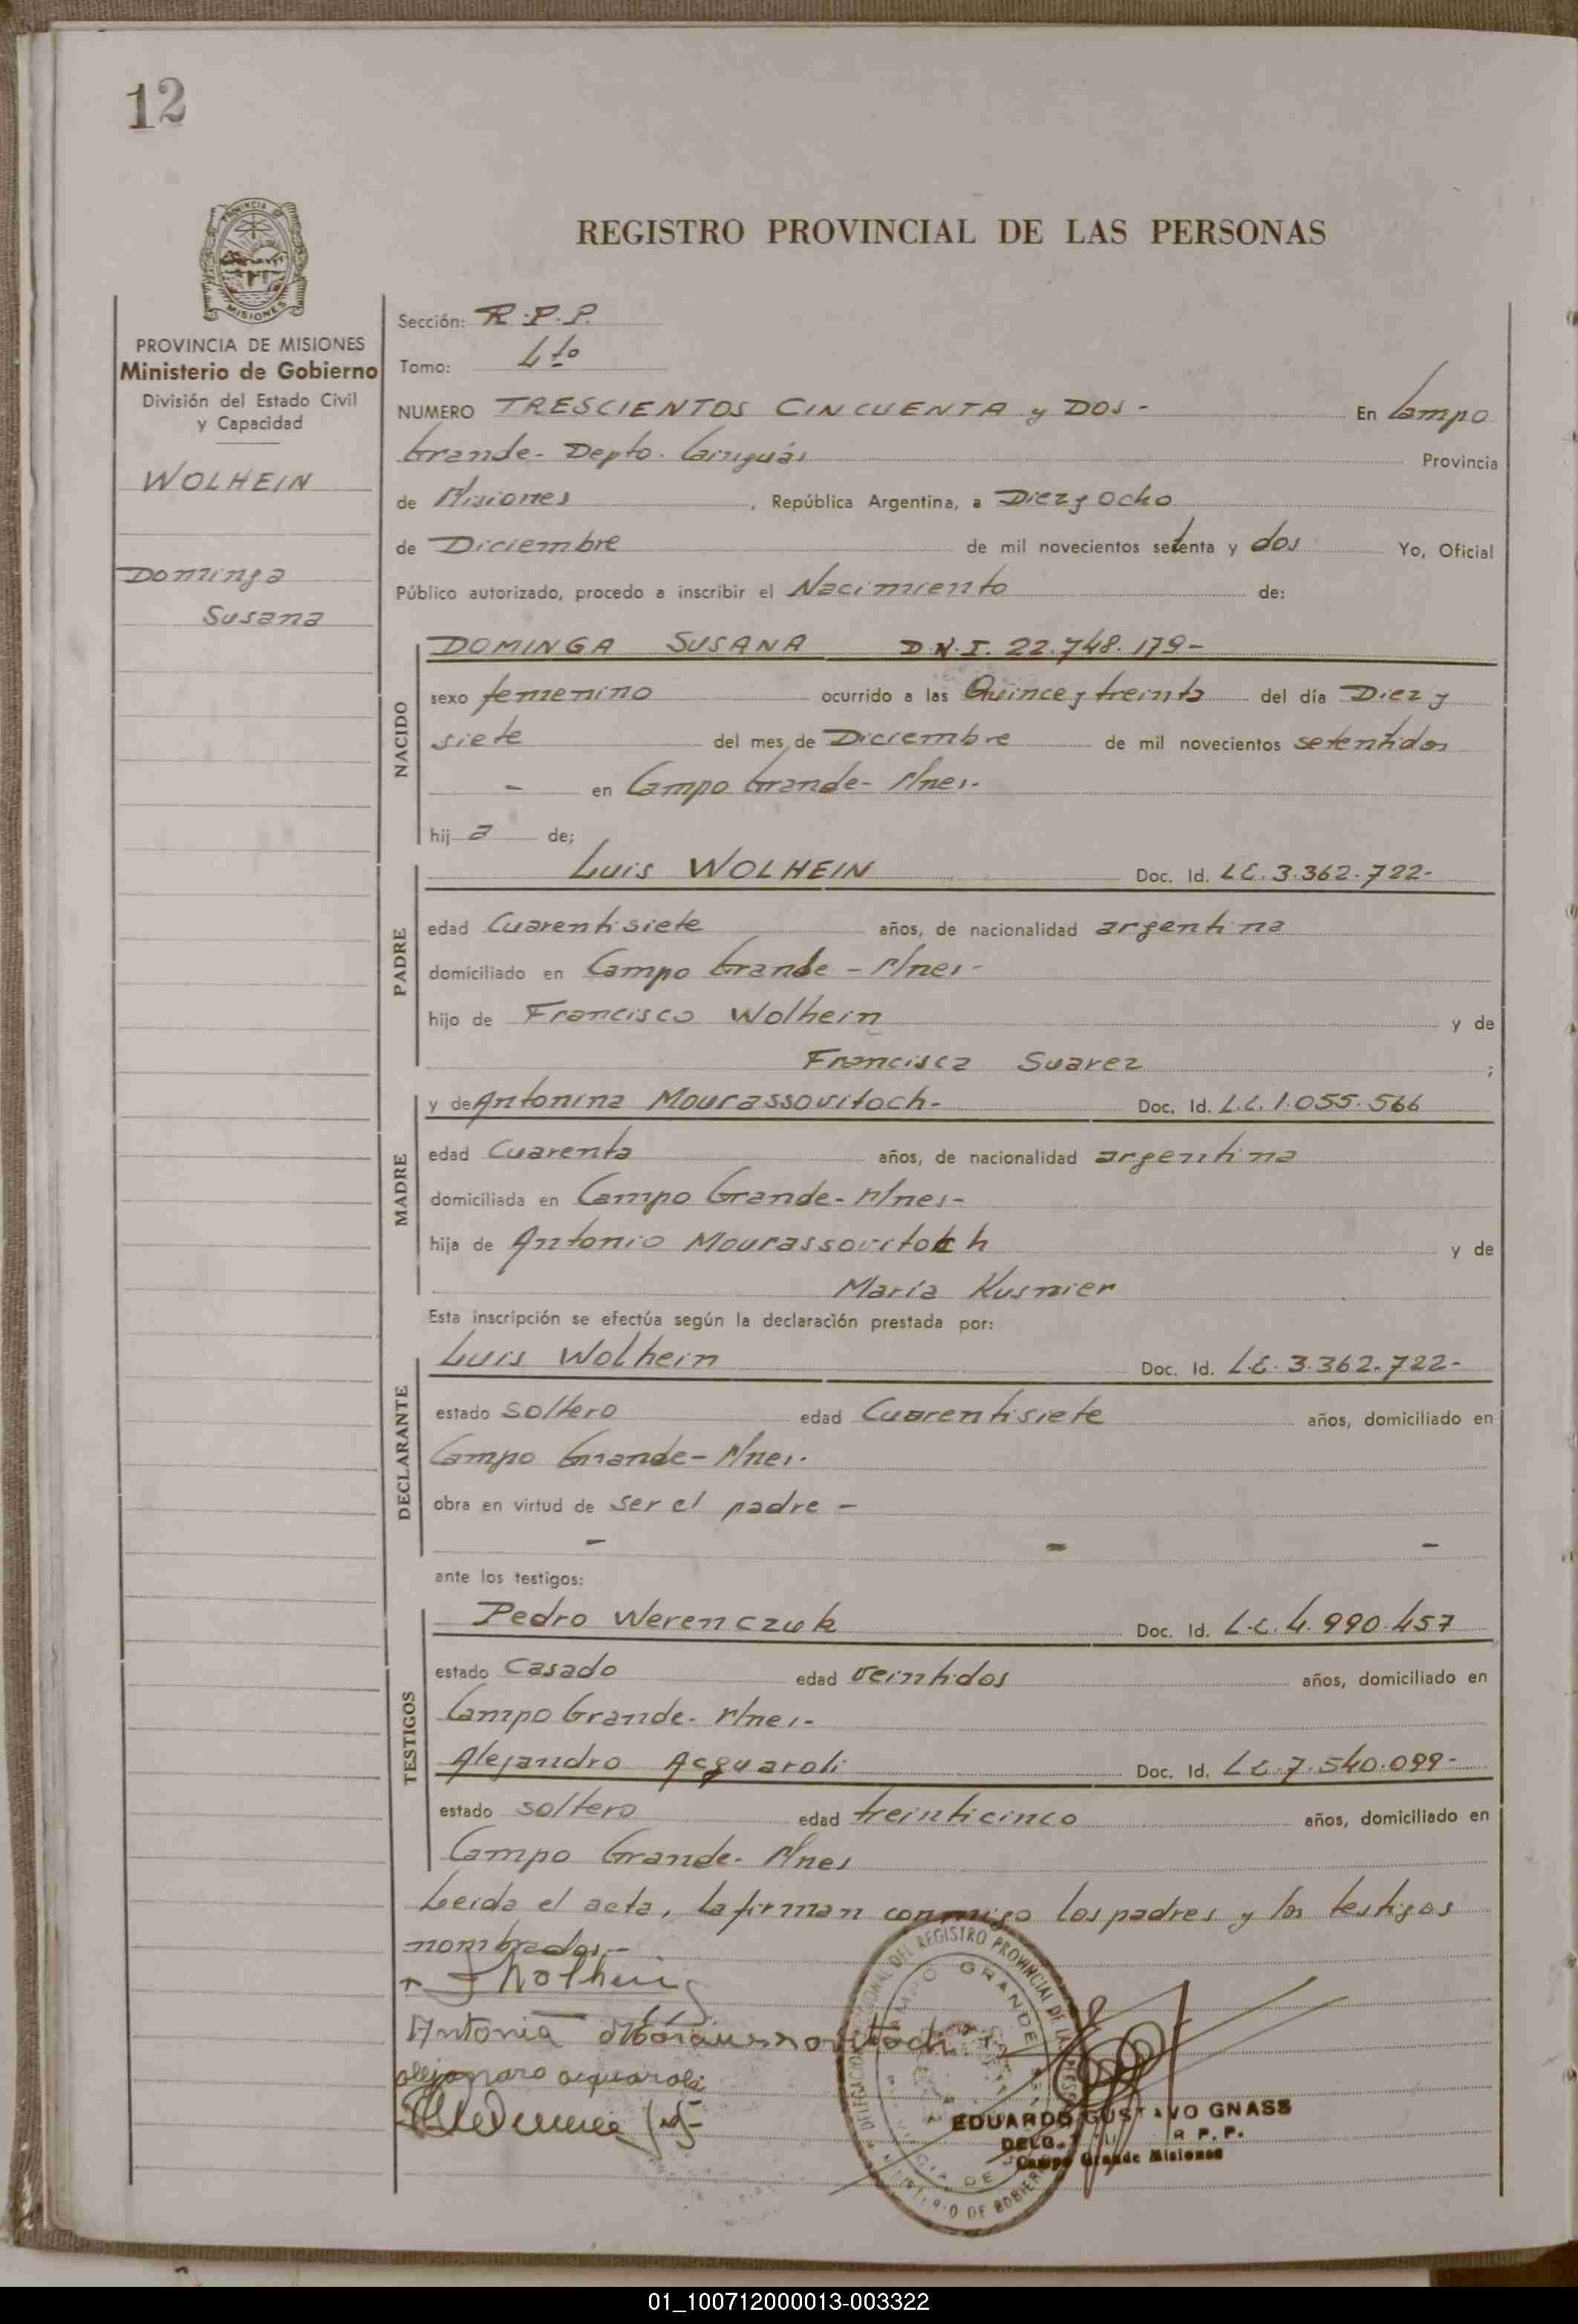 12
PROVINCIA DE
MISIONES
REGISTRO PROVINCIAL DE LAS PERSONAS
PROVINCIA DE MISIONES
Ministerio de Gobierno
División del Estado Civil
y Capacidad
WOLHEIN
Dominga
Susana
Sección: R.P.P.
Tomo: 4to
NUMERO TRESCIENTOS CINCUENTA y DOS - En Campo
Grande - Depto. Cainguás Provincia
de Misiones, República Argentina, a Diez y Ocho
de Diciembre de mil novecientos setenta y dos Yo, Oficial
Público autorizado, procedo a inscribir el Nacimiento de:
NACIDO
DOMINGA SUSANA D.N.I. 22.748.179-
sexo femenino ocurrido a las Quince y treinta del día Diez y
siete del mes de Diciembre de mil novecientos setentidos
- en Campo Grande - Mnes.
hij a de;
PADRE
Luis WOLHEIN Doc. Id. L.E. 3.362.722-
edad Cuarentisiete años, de nacionalidad argentina
domiciliado en Campo Grande - Mnes-
hijo de Francisco Wolhein y de
Francisca Suarez ;
MADRE
y de Antonina Mourassovitoch- Doc. Id. L.C. 1.055.566
edad Cuarenta años, de nacionalidad argentina
domiciliada en Campo Grande - Mnes-
hija de Antonio Mourassovitoch y de
María Kusnier
Esta inscripción se efectúa según la declaración prestada por:
DECLARANTE
Luis Wolhein Doc. Id. L.E. 3.362.722-
estado soltero edad Cuarentisiete años, domiciliado en
Campo Grande - Mnes.
obra en virtud de ser el padre -
- - -
ante los testigos:
TESTIGOS
Pedro Werenczuk Doc. Id. L.E. 4.990.457
estado casado edad veintidos años, domiciliado en
Campo Grande - Mnes-
Alejandro Acquaroli Doc. Id. L.E. 7.540.099-
estado soltero edad treinticinco años, domiciliado en
Campo Grande - Mnes
Leida el acta, la firman conmigo los padres y los testigos
nombrados.-
Wolhein
Antonia
alejandro acquaroli
DEL REGISTRO PROVINCIAL DE LAS
CAMPO GRANDE
EDUARDO GUSTAVO GNASS
R P. P.
Campo Grande Misiones
01_100712000013-003322